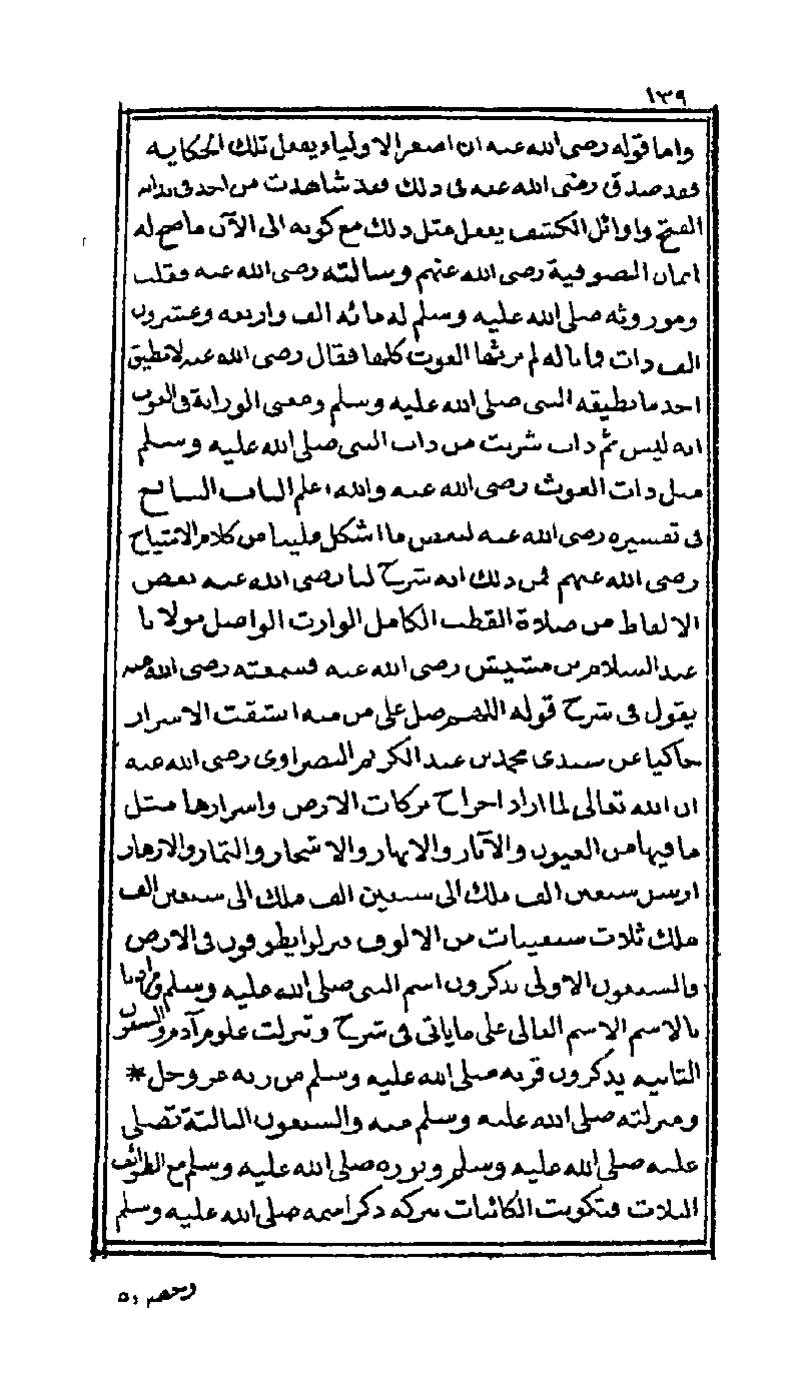 ١٣٩
واما قوله رضى الله عنه ان اصغر الاولياء يفعل تلك الحكاية
فقد صدق رضى الله عنه فى ذلك فقد شاهدت من احد فى بداية
الفتح واوائل الكشف يفعل مثل ذلك مع كونه الى الآن ما صح له
ايمان الصوفية رضى الله عنهم وسالته رضى الله عنه فقلت
وموروثه صلى الله عليه وسلم له مائة الف واربعة وعشرون
الف ذات فما باله لم يرثها الغوث كلها فقال رضى الله عنه لا تطيق
احد ما يطيقه النبى صلى الله عليه وسلم ومعنى الوراثة فى الغوث
انه ليس ثم ذات شربت من ذات النبى صلى الله عليه وسلم
مثل ذات الغوث رضى الله عنه والله اعلم الباب السابع
فى تفسيره رضى الله عنه لبعض ما اشكل علينا من كلام الاشياخ
رضى الله عنهم فمن ذلك انه شرح لنا رضى الله عنه بعض
الالفاظ من صلاة القطب الكامل الوارث الواصل مولانا
عبد السلام بن مشيش رضى الله عنه فسمعته رضى الله عنه
يقول فى شرح قوله اللهم صل على من منه انشقت الاسرار
حاكيا عن سيدى محمد بن عبد الكريم البصراوى رضى الله عنه
ان الله تعالى لما اراد اخراج بركات الارض واسرارها مثل
ما فيها من العيون والآبار والانهار والاشجار والثمار والازهار
ارسل سبعين الف ملك الى سبعين الف ملك الى سبعين الف
ملك ثلاث سبعينات من الالوف نزلوا يطوفون فى الارض
فالسبعون الاولى يذكرون اسم النبى صلى الله عليه وسلم ومرادنا
بالاسم الاسم العالى على ما ياتى فى شرح وتنزلت علوم آدم والسبعون
الثانية يذكرون قربه صلى الله عليه وسلم من ربه عز وجل *
ومنزلته صلى الله عليه وسلم منه والسبعون الثالثة تصلى
عليه صلى الله عليه وسلم ونوره صلى الله عليه وسلم مع الطوائف
الثلاث فتكونت الكائنات ببركة ذكر اسمه صلى الله عليه وسلم